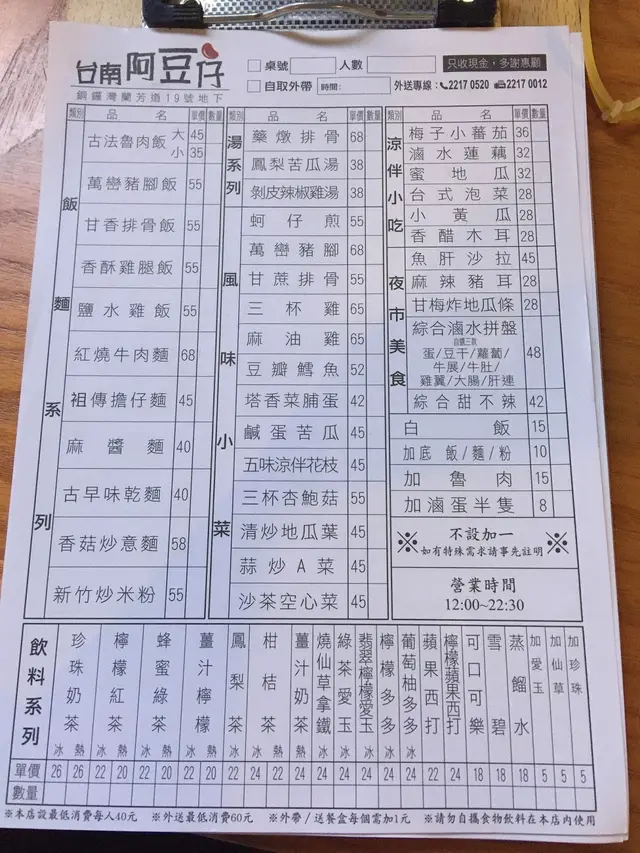 台南阿豆仔
銅鑼灣蘭芳道19號地下
桌號 人數 只收現金，多謝惠顧
自取外帶 時間: 外送專線：2217 0520 2217 0012
類別 品名 單價 數量
飯麵系列
古法魯肉飯 大 45
小 35
萬巒豬腳飯 55
甘香排骨飯 55
香酥雞腿飯 55
鹽水雞飯 55
紅燒牛肉麵 68
祖傳擔仔麵 45
麻醬麵 40
古早味乾麵 40
香菇炒意麵 58
新竹炒米粉 55
類別 品名 單價 數量
湯系列
藥燉排骨 68
鳳梨苦瓜湯 38
剝皮辣椒雞湯 38
風味小菜
蚵仔煎 55
萬巒豬腳 68
甘蔗排骨 55
三杯雞 65
麻油雞 65
豆瓣鱈魚 52
塔香菜脯蛋 42
鹹蛋苦瓜 45
五味涼伴花枝 45
三杯杏鮑菇 55
清炒地瓜葉 45
蒜炒A菜 45
沙茶空心菜 45
類別 品名 單價 數量
涼伴小吃
梅子小蕃茄 36
滷水蓮藕 32
蜜地瓜 32
台式泡菜 28
小黃瓜 28
香醋木耳 28
夜市美食
魚肝沙拉 45
麻辣豬耳 28
甘梅炸地瓜條 28
綜合滷水拼盤 48
自選三款
蛋/豆干/蘿蔔/
牛展/牛肚/
雞翼/大腸/肝連
綜合甜不辣 42
白飯 15
加底 飯/麵/粉 10
加魯肉 15
加滷蛋半隻 8
※ 不設加一 ※
如有特殊需求請事先註明
營業時間
12:00~22:30
飲料系列
珍珠奶茶 冰 熱
檸檬紅茶 冰 熱
蜂蜜綠茶 冰 熱
薑汁檸檬 冰 熱
鳳梨茶 冰 熱
柑桔茶 冰 熱
薑汁奶茶 冰 熱
燒仙草拿鐵 冰
綠茶愛玉 冰
翡翠檸檬愛玉 冰
檸檬多多 冰
葡萄柚多多 冰
蘋果西打
檸檬蘋果西打
可口可樂
雪碧
蒸餾水
加愛玉
加仙草
加珍珠
單價 26 26 22 20 22 20 22 20 22 24 22 24 22 24 24 24 24 24 22 24 18 18 18 5 5 5
數量
※本店設最低消費每人40元 ※外送最低消費60元 ※外帶/送餐盒每個需加1元 ※請勿自攜食物飲料在本店內使用